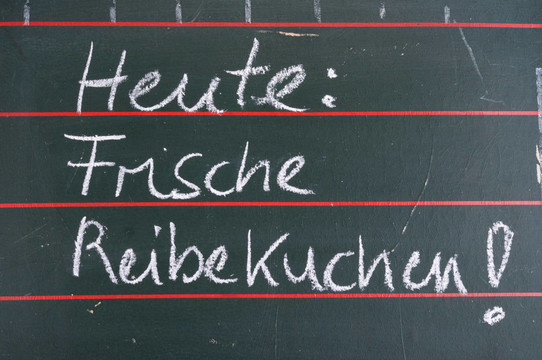 Heute:
Frische
Reibekuchen!